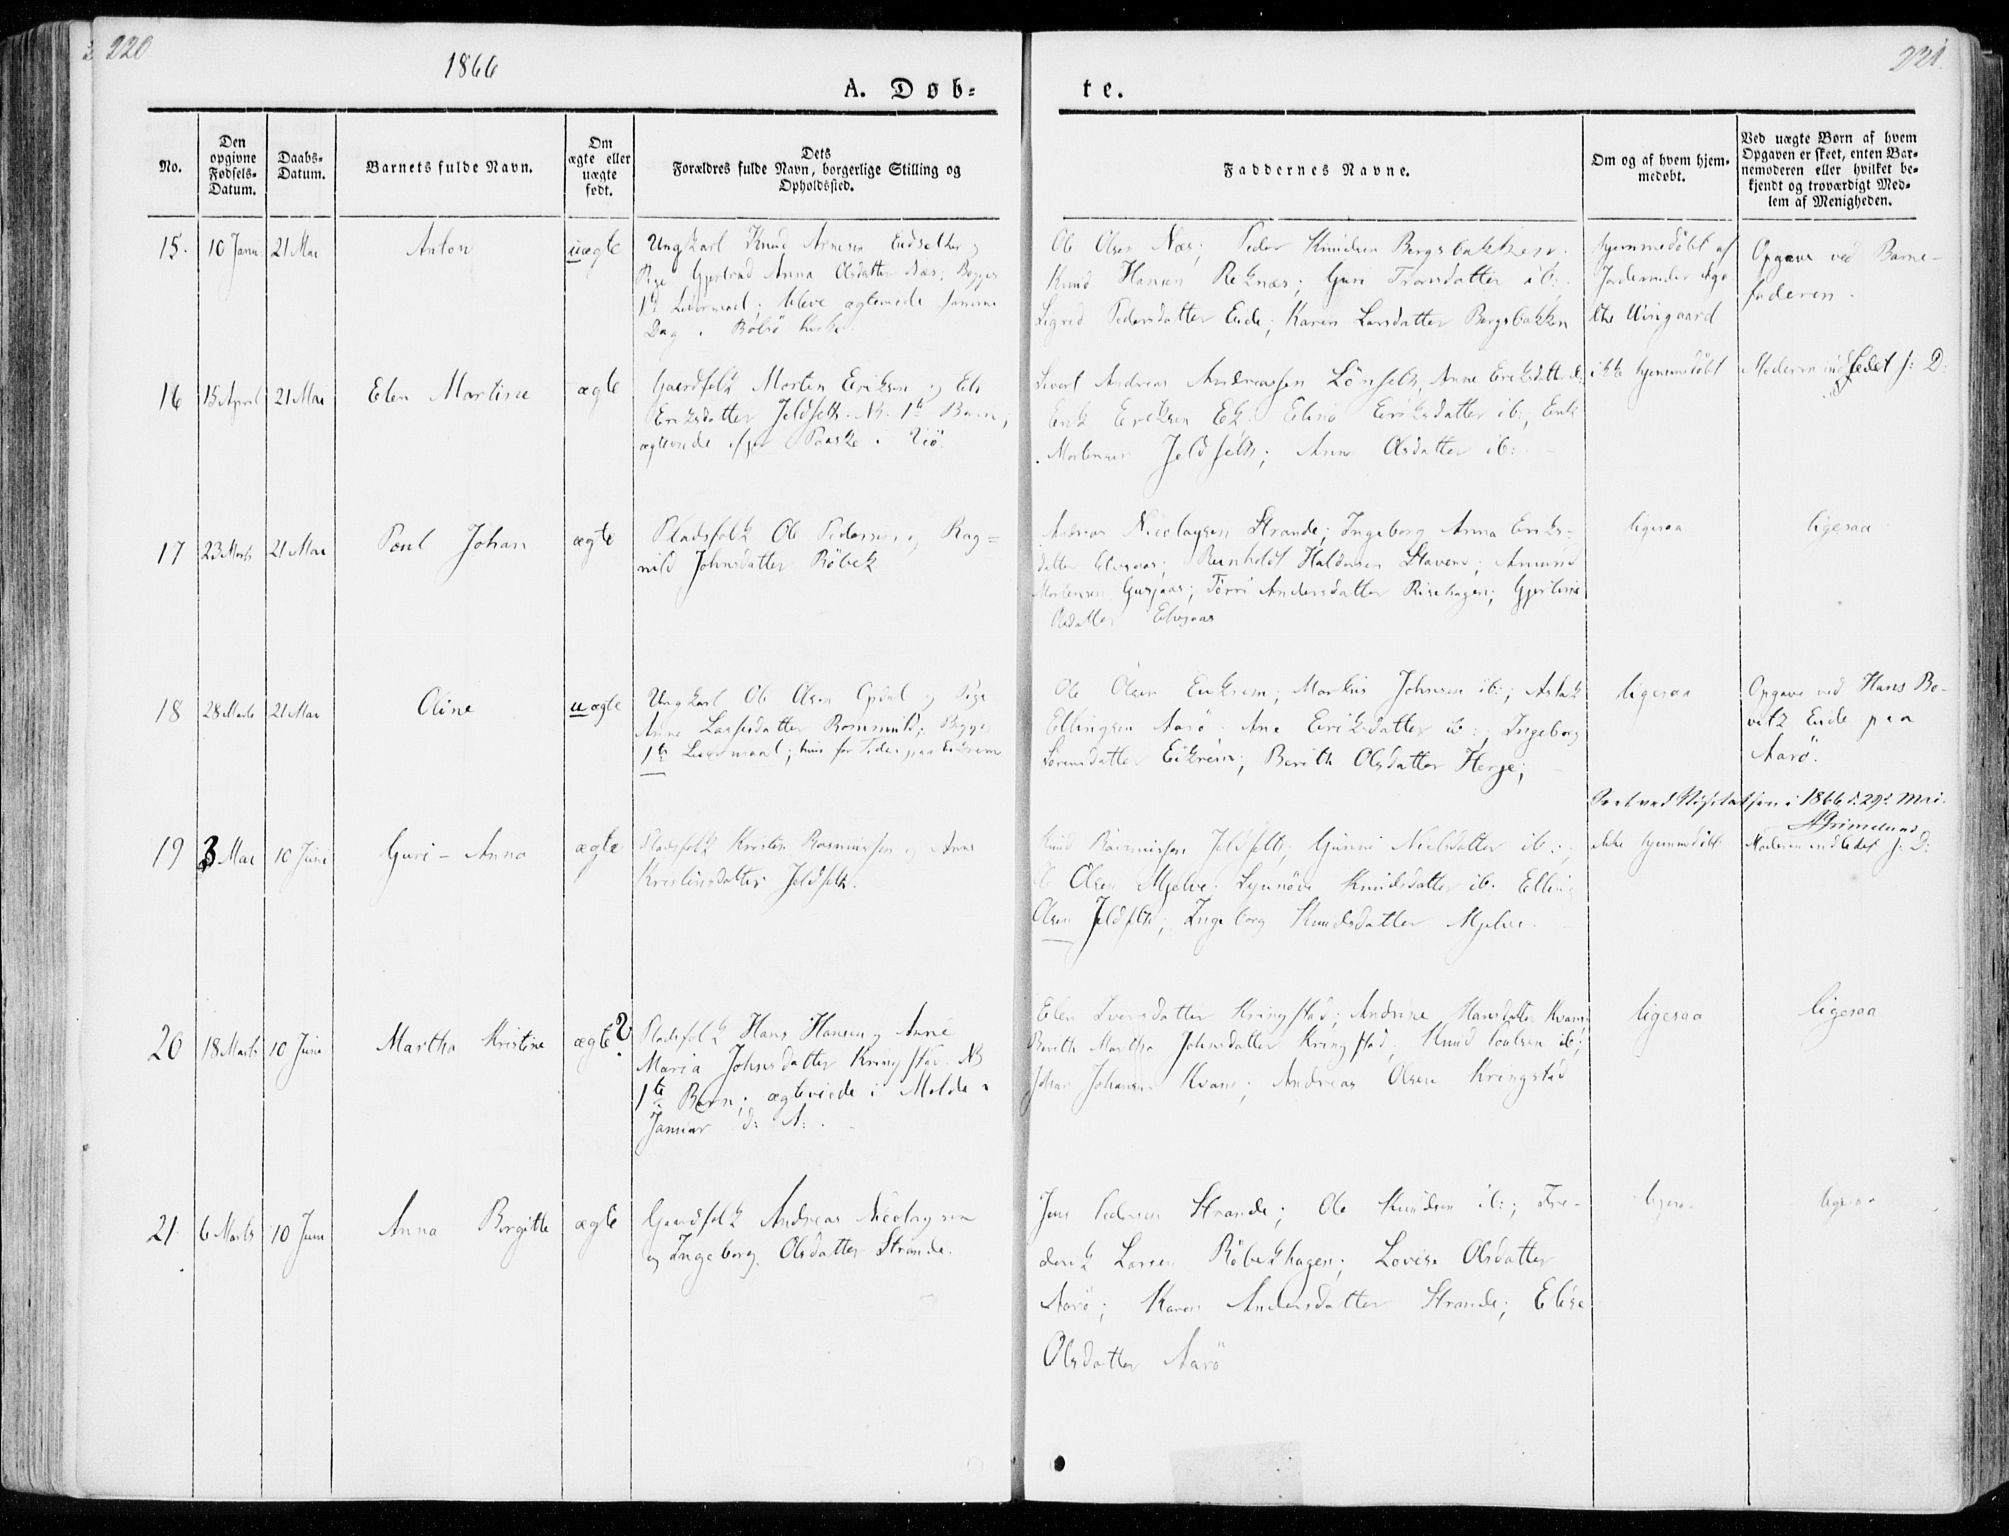 220
1866
A. Døb-
te.
221.
No.
Den
opgivne
Fødsels-
Datum.
Daabs-
Datum.
Barnets fulde Navn.
Om
ægte eller
uægte
født.
Dets
Forældres fulde Navn, borgerlige Stilling og
Opholdssted.
Faddernes Navne.
Om og af hvem hjem-
medøbt.
Ved uægte Børn af hvem
Opgaven er skeet, enten Bar-
nemoderen eller hvilket be-
kjendt og troværdigt Med-
lem af Menigheden.
15.
10 Janu
21 Mai
Anton
uægte
Ungkarl Knud Arnesen
Pige Gjertrud Anna Olsdatter Næs; Begges
1te Leiermaal. bleve ægteviede samme
Dag i Bolsö Kirke.
Ole Olsen Næs; Peder Knudsen Bergsbakken
Knud Hansen Reknæs; Guri Tronsdatter ib:
Sigrid Pedersdatter Eide; Karen Larsdatter Bergsbakken
hjemmedöbt af
Jordemoder
Opgave ved Barne-
faderen.
16
15 April
21 Mai
Elen Martine
ægte
Gaardfolk Morten Eriksen og
Eriksdatter Jeldseth. NB. 1te Barn;
ægteviede Paaske i
Sivert Andreas Andreassen Lönseth, Anne Eriksdatter
Erik Eriksen Ek. Eriksdatter ib:, Erik
Mortensen Jeldseth; Anne Olsdatter ib:
ikke hjemmedöbt
Moderen indledet s: D:
17
23 Marts
21 Mai
Poul Johan
ægte
Pladsfolk Ole Pedersen og Rag-
nild Johnsdatter Röbek
Andreas Nicolaysen Strande; Ingeborg Anna Eriks-
datter Elvsaas; Reinholdt Haldorsen Stavem; Amund
Mortensen; Andersdatter Risehagen;
Olsdatter Elvsaas
ligesaa
ligesaa
18
28 Marts
21 Mai
Oline
uægte
Ungkarl Ole Olsen Opdal og Pige
Anne Lassesdatter; Begges
1te Leiermaal; hun for Tiden paa Eikrem
Ole Olsen Eikrem; Markus Johnsen ib:; Aslak
Ellingsen Aarö. Ane Eriksdatter ib:; Ingeborg
Sörensdatter Eikrem; Berith Olsdatter Herje;
ligesaa
Opgave ved Hans
Eide paa
Aarö.
i 1866 d. 29d. Mai.
Grimelund
19
3 Mai
10 Juni
Guri - Anna
ægte
Pladsfolk Kristen Rasmussen og Anne
Kristensdatter Jeldseth.
Knud Rasmussen Jeldseth; Gunni Nielsdatter ib:;
Ole Olsen Mjelve. Synnöve Knudsdatter ib: Elling
Olsen Jeldseth; Ingeborg Knudsdatter Mjelve.
ikke hjemmedöbt
Moderen indledet s: D:
20
18 Marts
10 Juni
Martha Kristine
ægte?
Pladsfolk Hans Hansen og Anne
Maria Johnsdatter Kringstad. NB
1te Barn; ægteviede i Molde i
Januar d: A:.
Elen Iversdatter Kringstad; Andrine Hansdatter Kvam
Berith Martha Johnsdatter Kringstad. Knud Poulsen ib;
Johan Johansen Kvam; Andreas Olsen Kringstad
ligesaa
ligesaa
21.
6 Marts
10 Juni
Anna Birgitte
ægte
Gaardfolk Andreas Nicolaysen
og Ingeborg Olsdatter Strande.
Jens Pedersen Strande; Ole Knudsen ib:; Fre-
derik Larsen Röbekhagen; Lovise Olsdatter
Aarö; Karen Andersdatter Strande; Elise
Olsdatter Aarö
ligesaa
ligesaa